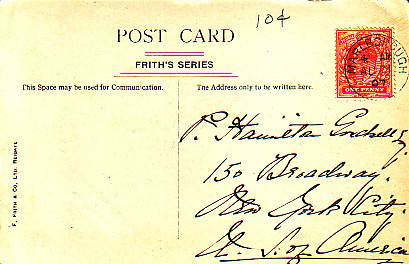 10¢
POST CARD
FRITH'S SERIES
This Space may be used for Communication.
The Address only to be written here.
MARLBOROUGH
ONE PENNY
P. Hamilton
150 Broadway.
New York City.
U. S. of America
F. FRITH & CO., LTD. REIGATE